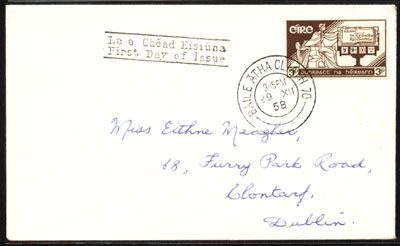 Lá a Chéad Eisiúna
First Day of Issue
éire
3p bunreacht na héireann 3p
BAILE ÁTHA CLIATH 70
9.15PM
29 XII
58
Miss Eithne Meagher,
68, Furry Park Road,
Clontarf,
Dublin.